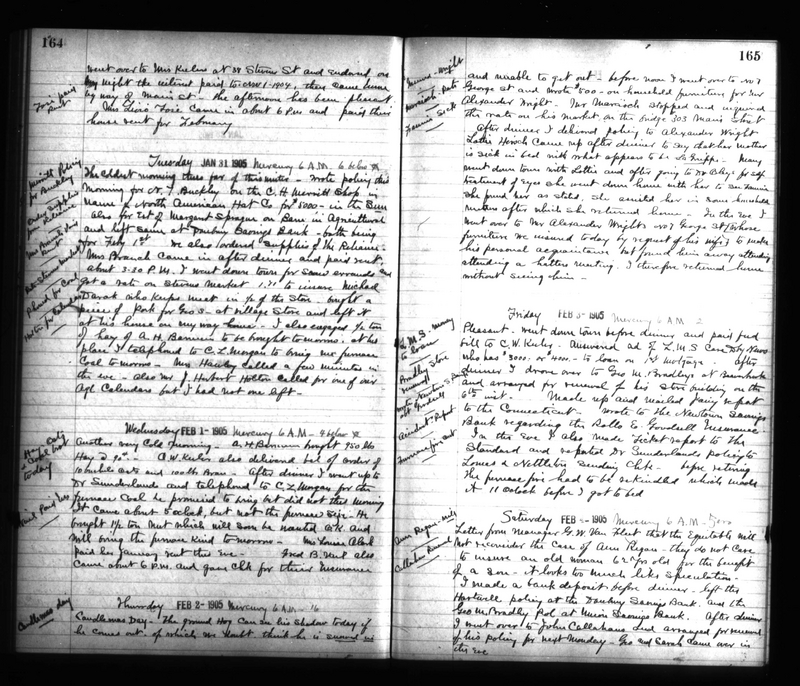 164
went over to Mrs Keeler at 38 Stevens St and endorsed on
my night the interest paid to Nov 1-1904, then came home
by way of Main St. the afternoon has been pleasant
Mrs Lizzie Foxe came in about 6 P.M. and paid their
house rent for February
Foxe paid
Rent
Tuesday JAN 31 1905 Mercury 6 A.M. 6 below
The Coldest morning thus far of this winter - Wrote policy this
morning for N. F. Buckley on the C. H. Merritt Shop in
name of North American Hat Co for 5000 - in the Sun
Also for Est of Margaret Sprague on Barn in Agricultural
and left same at Danbury Savings Bank - both being
for Feby 1st We also ordered supplies of the Reliance
Mrs Branch Came in after dinner and paid rent.
about 3-30 P.M. I went down town for some errands and
got a rate on Stevens Market 1.75 to insure Michael
who keeps meat in ½ of the Store - bought a
piece of Pork for Geo S - at village Store and left it
at his house on my way home - I also engaged ½ ton
of hay of A. H. Barnum to be bought tomorrow. at his
place I telephoned to C. L. Morgan to bring me furnace
Coal tomorrow - Mrs Hawley called a few minutes in
the eve - also Mr J. Herbert Holton called for one of our
Agl Calendars but I had not one left -
Merritt Policy
for Buckley
Order Supplies
from Reliance
Mrs Branch Paid
Rent
Rate Stevens Market
Phoned for Coal
Holton for Calendar
Wednesday FEB 1 - 1905 Mercury 6 A.M - 4 below
Another very Cold morning - A. H. Barnum bought 950 lbs
Hay @ 90 - C. W. Keeler also delivered bal of order of
10 bushels oats and 100 lbs Bran - After dinner I went up to
Dr Sunderlands and telephoned to C. L. Morgan for the
furnace Coal he promised to bring but did not this morning
It came about 5 oclock, but not the furnace size - He
bought ½ ton Nut which will soon be wanted O.K. and
will bring the furnace kind tomorrow - Miss Louise Abel
paid her January rent this eve - Fred B. Nent also
came about 6 P.M. and gave Chk for their Insurance
Hay, Oats
& Coal bought
today
Thursday FEB 2 - 1905 Mercury 6 A.M - 16
Candlemas Day - The ground Hog Can see his shadow today if
he comes out of which we doubt think he is snowed in
Candlemas day
165
and unable to get out - before noon I went over to No 7
George St and wrote 500 - on household furniture for Mr
Alexander Wright. Mr stopped and inquired
the rate on his market on the bridge 303 Main Street
After dinner I delivered policy to Alexander Wright
Lottie Hirsch Came up after dinner to say that her mother
is sick in bed with what appears to be La Grippe - Mary
went down town with Lottie and after going to Dr for
treatment of eyes she went down home with her to see Fannie
She found her as stated. She assisted her in some household
means after which she returned home - In the eve I
went over to Mr Alexander Wright No 7 George St (whose
furniture we insured today by request of his wife) to make
his personal acquaintance but found him away attending
attending a hatters meeting. I therefore returned home
without seeing him -
Fannie Sick
Friday FEB 3 - 1905 Mercury 6 A.M 2
Pleasant - went down town before dinner and paid feed
bill to C. W. Keeler - Answered ad of L. M. S Care Dby News
who has 3000. or 4000 - to loan on 1st Mortgage. After
dinner I drove over to Geo M. Bradleys at Beaverbrook
and arranged for renewal of his store building on the
6th inst - Made up and mailed Jany report
to the Connecticut - Wrote to the Newtown Savings
Bank regarding the Rollo E. Goodsell Insurance
In the Eve I also made Ticket report to the
Standard and reported Dr Sunderlands policy to
Lomas & Nettleton sending Chk - before retiring
the furnace fire had to be rekindled which made
it 11 oclock before I got to bed
L. M. S. - Money
to loan
Bradley Store
renewal
wrote Newtown S. Bank
abt Goodsell
Accident Report
Furnace fire out
Saturday FEB - 1905 Mercury 6 A.M - Zero
Letter from Manager G. W. Van Fleet that the Equitable will
Not reconsider the Case of Ann Regan - they do not Care
to insure an old woman 62 yrs old for the benefit
of a son - it looks too much like speculation -
I made a bank deposit before dinner. left the
Hartwell policy at the Danbury Savings Bank. and the
Geo M. Bradley Pol at Union Savings Bank. After dinner
I went over to John Callahans and arranged for renewal
of his policy for next Monday - Geo and Sarah came over in
the eve
Ann Regan - rejd
Callahan Renewal